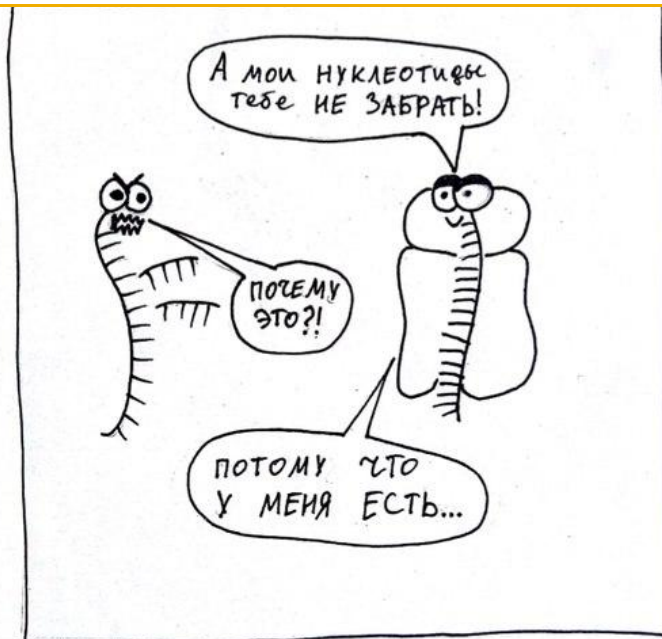 А мои нуклеотиды
тебе НЕ ЗАБРАТЬ!
ПОЧЕМУ
ЭТО?!
ПОТОМУ ЧТО
У МЕНЯ ЕСТЬ...